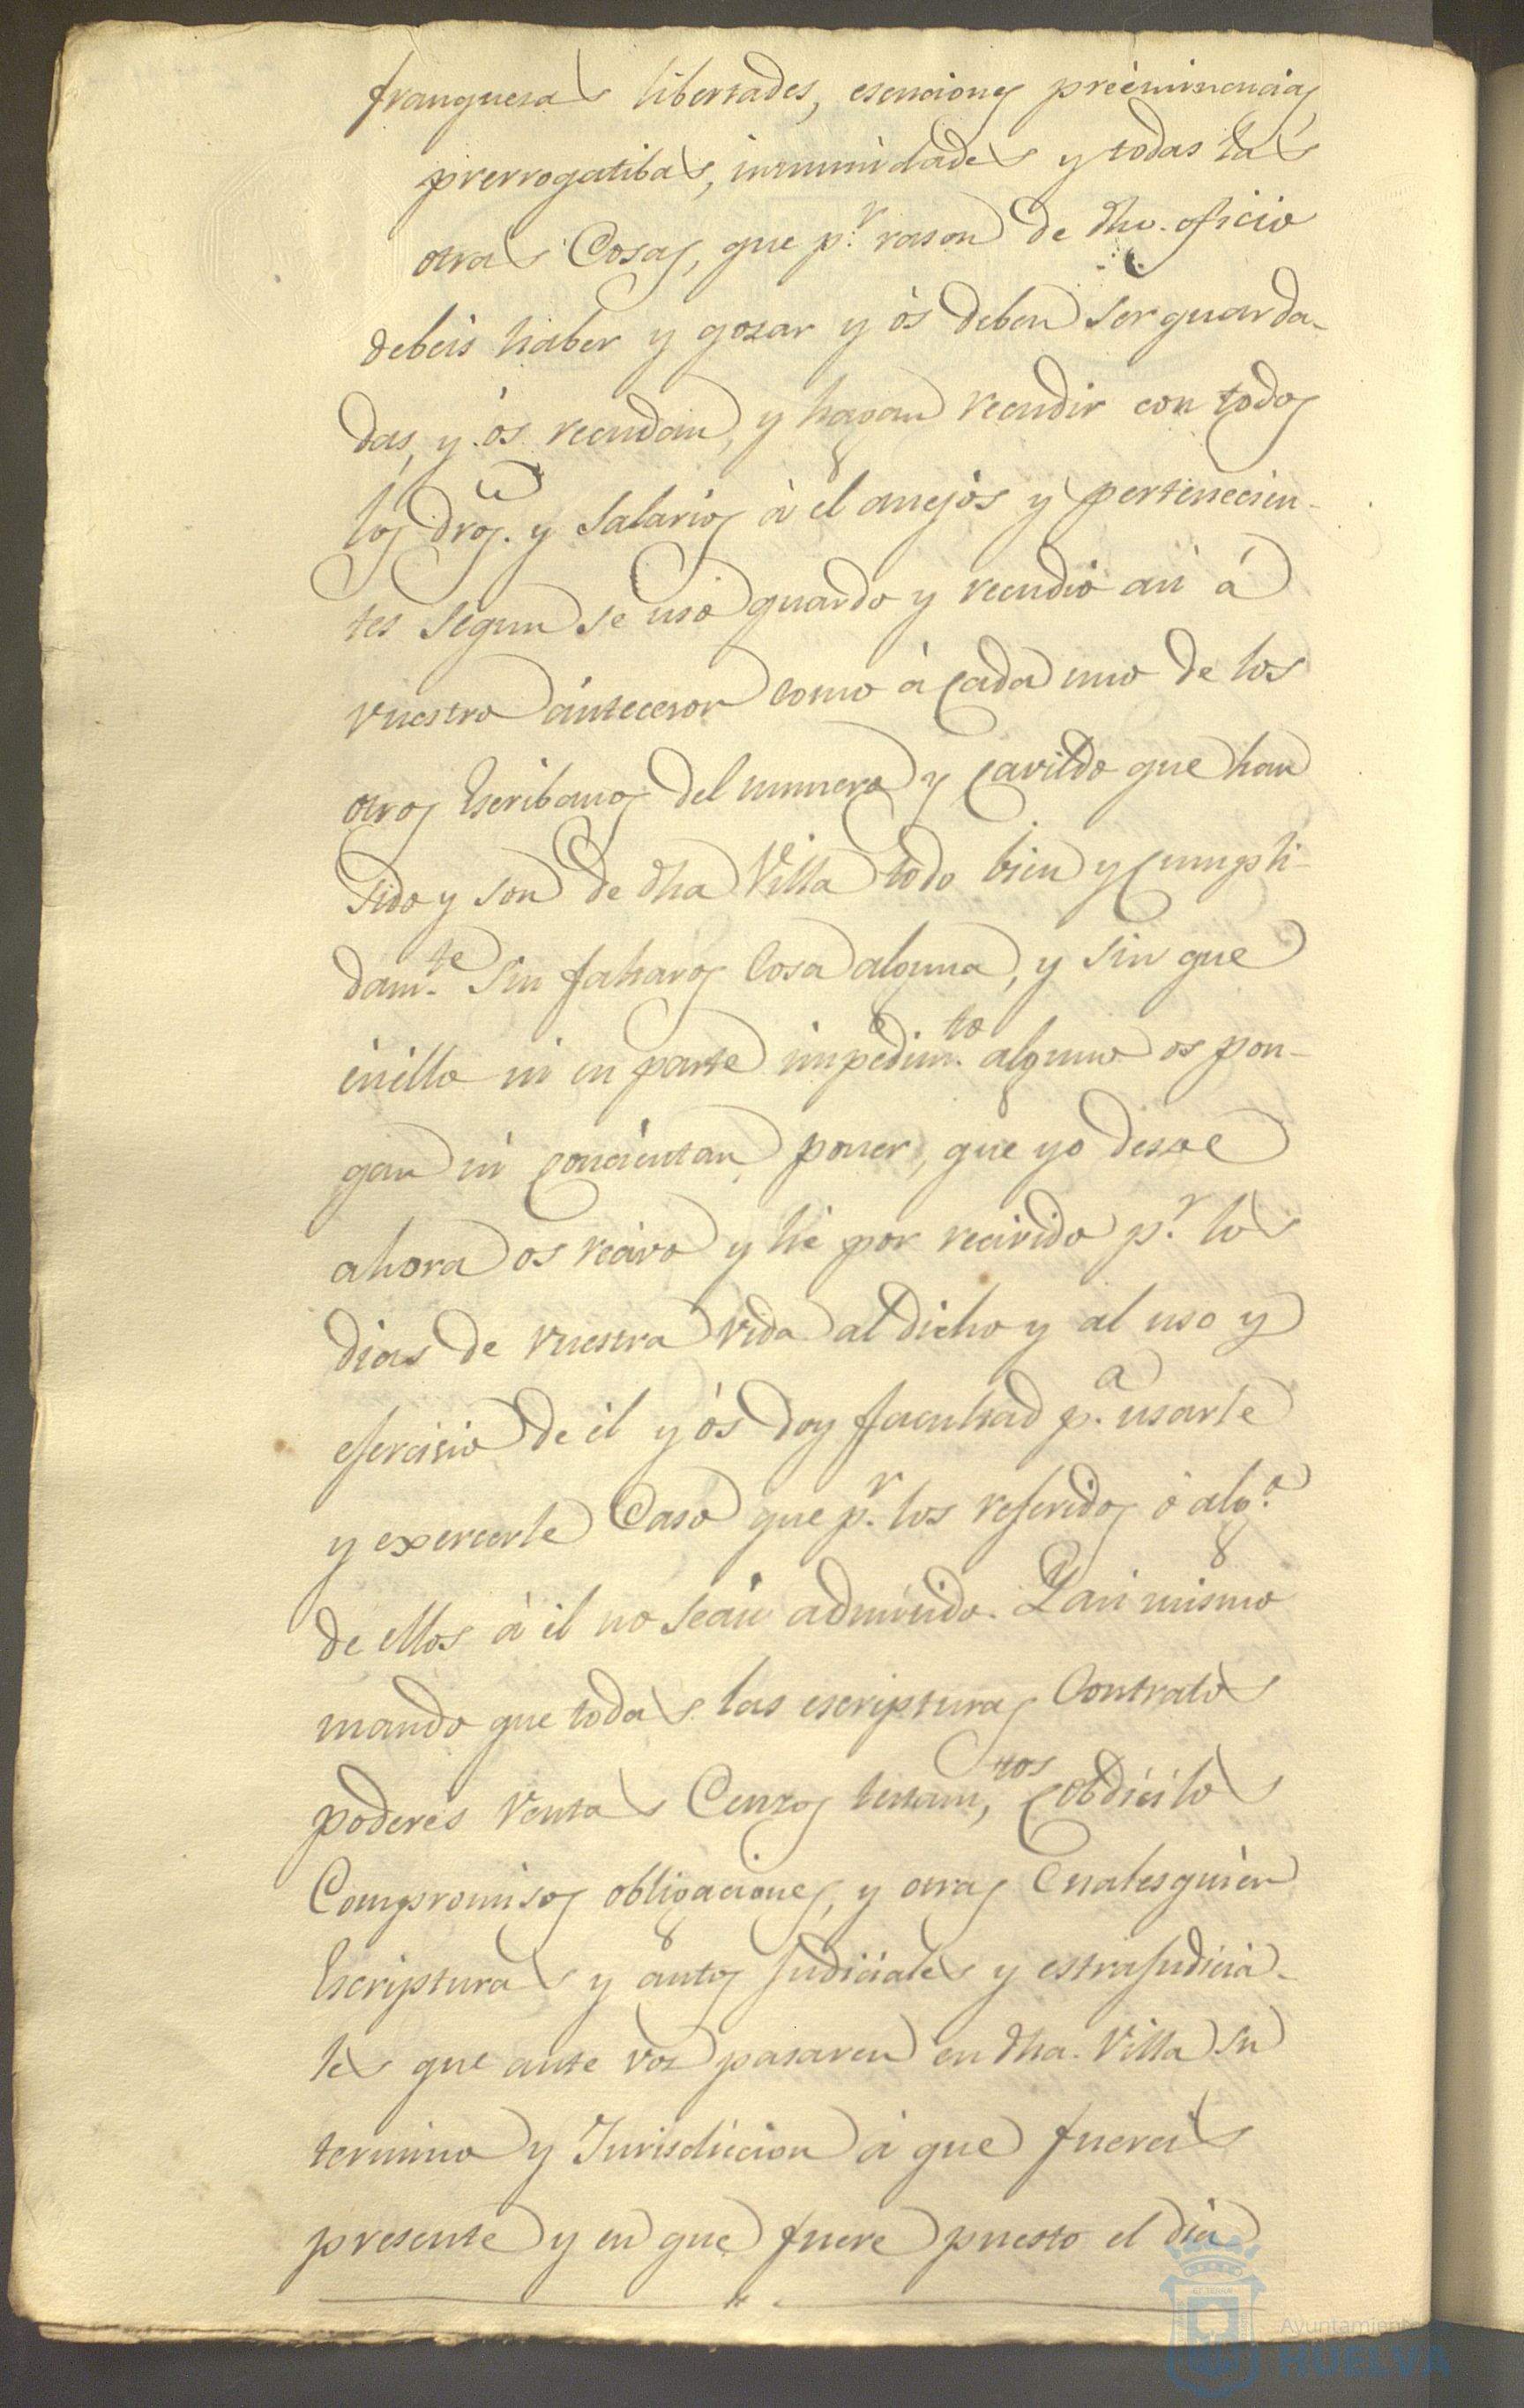 franquesas libertades, esenciones preéminencias,
prerrogatibas, inmunidades y todas las
otras Cosas, que p.r rason de dho. oficio
debeis haber y gozar y ós deben ser guarda-
das, y ós recudan, y hagan recudir con todos
los dros. y Salarios á él anejos y pertenecien-
tes segun se usó guardo y recudió asi á
vuestro ántecesor como á cada uno de los
otros Escribanos del numero y Cavildo que han
sido y son de dha Villa todo bien y Cumpli-
dam.te Sin faltaros Cosa alguna, y sin que
énello ni en parte impedim.to alguno os pon-
gan ni Concientan poner, que yo desde
ahora os recivo y hé por recivido p.r los
dias de vuestra vida al dicho y al uso y
esercisio de él y ós doy facultad p.a usarle
y exercerle Caso que p.r los referidos ó alg.o
de ellos á él no seais admitido. Y asi mismo
mando que todas las escripturas Contratos
poderes Ventas Cenzos testam,tos Cobdicilos
Compromisos obligaciones, y otras Cualesquier
Escripturas y áutos Judiciales y estrajudicia-
les que ante vos pasaren en dha. Villa su
termino y Jurisdiccion á que fuereis
presente y en que fuere puesto el dia
Ayuntamiento
HUELVA